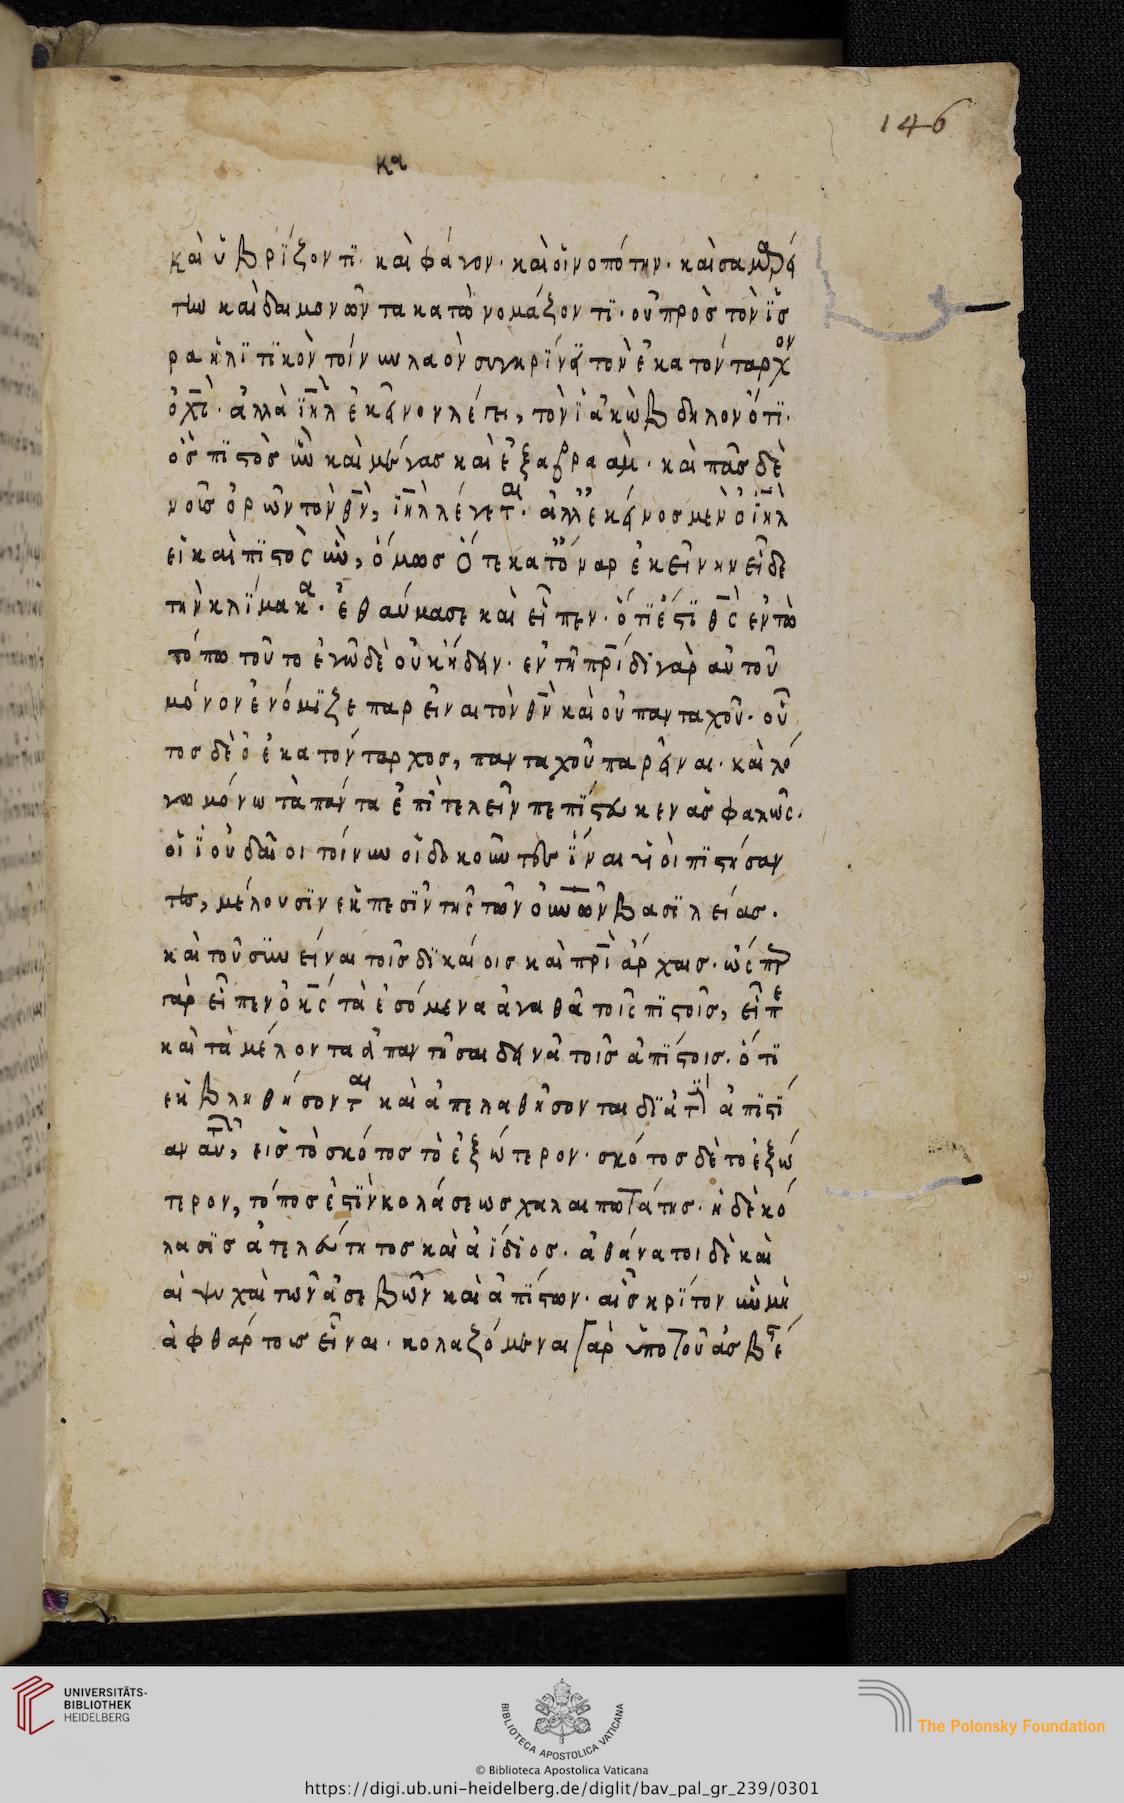 146
κα
καὶ ὑβρίζοντϊ· καὶ φάγον· καὶ οἰνοπότην· καὶ σαμαρεί
την καὶ δαιμονῶντα κατωνομάζοντϊ· οὐ πρὸσ τὸν ἰσ
ραηλϊτϊκὸν τοίνυν λαὸν συγκρίνει τὸν ἑκατόνταρχον
ὁ χς̄· ἀλλὰ ἰη̄λ ἐκεῖνον λέγει, τὸν ἰακὼβ δηλονότϊ·
ὁσ πϊστὸσ ὢν καὶ μέγασ καὶ ἐξ ἀβραάμ· καὶ πᾶσ δὲ
νοῦσ ὁρῶν τὸν θν̄, ἰη̄λ λέγεται· ἀλλ' ἐκεῖνοσ μὲν ὁ ἰη̄λ
εἰ καὶ πϊστὸς ὢν, ὅμωσ ὅτε κατ' ὄναρ ἐκείνην εἶδε
τὴν κλίμακα· ἐθαύμασε καὶ εἶπεν· ὅτϊ ἐστϊ θς̄ ἐν τῶ
τόπω τούτο ἐγὼ δὲ οὐκ ἤδειν· ἐν τῆ πρ̄ίδϊ γὰρ αὐτοῦ
μόνον ἐνόμϊζε παρεῖναι τὸν θν̄ καὶ οὐ πανταχοῦ· οὗ
τοσ δὲ ὁ ἑκατόνταρχοσ, πανταχοῦ παρεῖναι· καὶ λό
γω μόνω τὰ πάντα ἐπϊτελεῖν πεπϊστευκεν ἀσφαλῶς·
οἱ ἰουδαῖοι τοίνυν οἱ δοκοῦντες εἶναι υἱοὶ πϊστήσαν
τες, μέλουσϊν ἐκπεσῖν τῆς τῶν οὐν̄ῶν βασϊλείασ·
καὶ τοῦ συνεῖναι τοῖσ δϊκαίοισ καὶ πρ̄ϊάρχαισ· ὥσπερ
γὰρ εἶπεν ὁ κς̄ τὰ ἐσόμενα ἀγαθὰ τοῖς πϊστοῖσ, εἶπε
καὶ τὰ μέλοντα ἀπαντῆσαι δεινὰ τοῖσ ἀπϊστοισ· ὅτϊ
ἐκβληθήσονται καὶ ἀπελαθήσονται δϊὰ τὴν ἀπϊστϊ
αν αὐτῶν, εἰσ τὸ σκότοσ τὸ ἐξώτερον· σκότοσ δὲ τὸ ἐξώ
τερον, τόποσ ἐστϊν κολάσεωσ χαλαιπωτάτησ· ἡ δὲ κό
λασϊσ ἀτελεύτητοσ καὶ ἀΐδϊοσ· ἀθάνατοι δὲ καὶ
αἱ ψυχαὶ τῶν ἀσεβῶν καὶ ἀπϊστων· αἷσ κρῖτον ἦν μὴ
ἀφθάρτουσ εἶναι· κολαζόμεναι γὰρ ὑπὸ τοῦ ἀσβέ
UNIVERSITÄTS-
BIBLIOTHEK
HEIDELBERG
BIBLIOTECA APOSTOLICA VATICANA
The Polonsky Foundation
© Biblioteca Apostolica Vaticana
https://digi.ub.uni-heidelberg.de/diglit/bav_pal_gr_239/0301